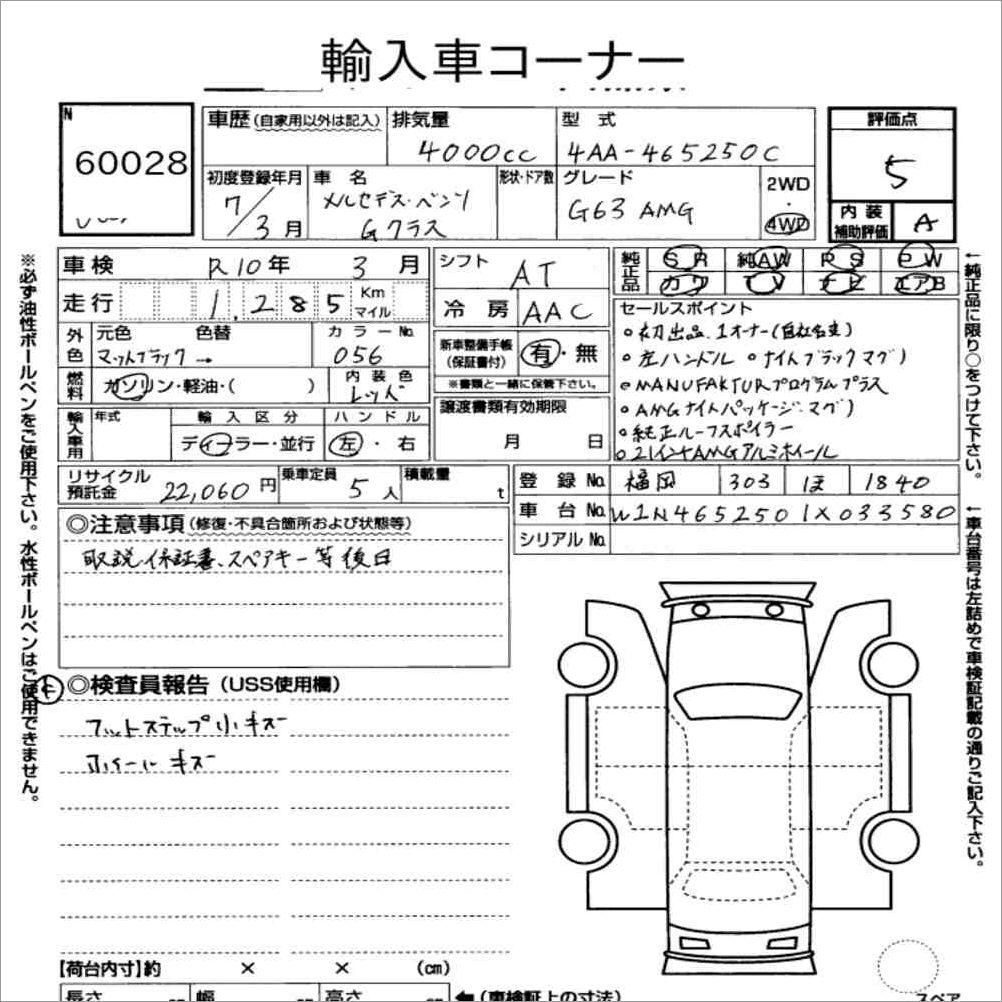 輸入車コーナー
N
60028
車歴(自家用以外は記入)
排気量
4000cc
型式
4AA-465250C
評価点
5
内装補助評価
A
初度登録年月
7/3月
車名
メルセデス・ベンツ
Gクラス
形状・ドア数
グレード
G63 AMG
2WD
・
4WD
車検
R10年 3月
走行
1,285 Km
マイル
シフト
AT
冷房
AAC
純正品
SR 純AW PS PW
カワ TV ナビ エアB
外色
元色 色替
マットブラック→
カラーNo.
056
燃料
ガソリン・軽油・( )
内装色
レッド
新車整備手帳
(保証書付)
有・無
※書類と一緒に保管下さい。
セールスポイント
○初出品、1オーナー(自社名変)
○左ハンドル ○ナイトブラックマグノ
○MANUFAKTURプログラムプラス
○AMGナイトパッケージ・マグノ
○純正ルーフスポイラー
○21インチAMGアルミホイール
輸入車用
年式
輸入区分
ディーラー・並行
ハンドル
左・右
譲渡書類有効期限
月 日
リサイクル預託金
22,060円
乗車定員
5人
積載量
t
登録No.
福岡 303 ほ 1840
車台No.
W1N4652501X033580
シリアルNo.
◎注意事項(修復・不具合箇所および状態等)
取説、保証書、スペアキー等後日
◎検査員報告(USS使用欄)
フットステップ小キズ
ホイールキズ
【荷台内寸】約 × × (cm)
長さ
幅
高さ
(車検証上の寸法)
スペア
※必ず油性ボールペンをご使用下さい。水性ボールペンはご使用できません。
←純正品に限り○をつけて下さい。
←車台番号は左詰めで車検証記載の通りご記入下さい。